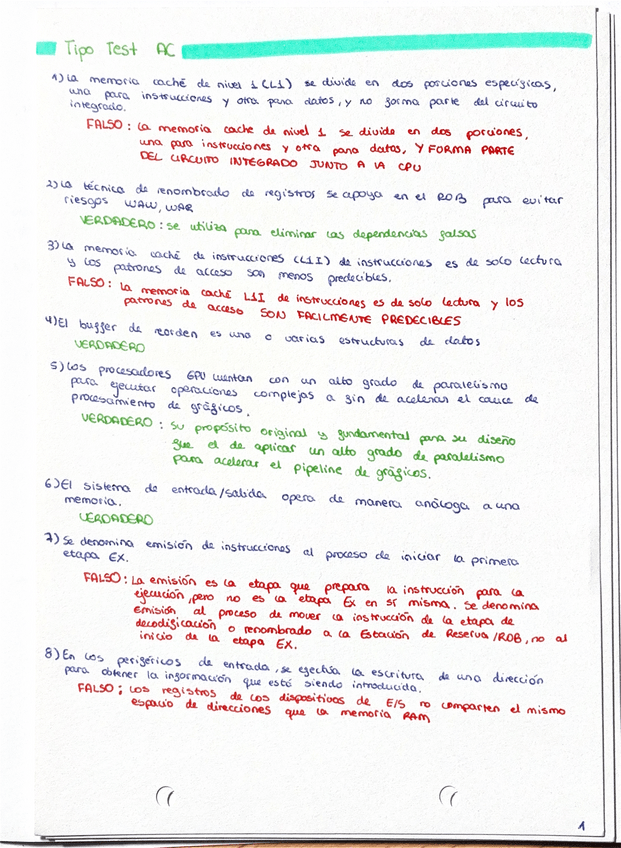 Tipo Test AC
1) La memoria caché de nivel 1 (L1) se divide en dos porciones específicas,
una para instrucciones y otra para datos, y no forma parte del circuito
integrado.
FALSO: La memoria cache de nivel 1 se divide en dos porciones,
una para instrucciones y otra para datos, Y FORMA PARTE
DEL CIRCUITO INTEGRADO JUNTO A LA CPU
2) La técnica de renombrado de registros se apoya en el ROB para evitar
riesgos WAW, WAR
VERDADERO: se utiliza para eliminar las dependencias falsas
3) La memoria caché de instrucciones (L1I) de instrucciones es de solo lectura
y los patrones de acceso son menos predecibles.
FALSO: La memoria caché L1I de instrucciones es de solo lectura y los
patrones de acceso SON FACILMENTE PREDECIBLES
4) El buffer de reorden es una o varias estructuras de datos
VERDADERO
5) Los procesadores GPU cuentan con un alto grado de paralelismo
para ejecutar operaciones complejas a fin de acelerar el cauce de
procesamiento de gráficos.
VERDADERO: Su propósito original y fundamental para su diseño
fue el de aplicar un alto grado de paralelismo
para acelerar el pipeline de gráficos.
6) El sistema de entrada/salida opera de manera análoga a una
memoria.
VERDADERO
7) Se denomina emisión de instrucciones al proceso de iniciar la primera
etapa EX.
FALSO: La emisión es la etapa que prepara la instrucción para la
ejecución, pero no es la etapa Ex en sí misma. Se denomina
emisión al proceso de mover la instrucción de la etapa de
decodificación o renombrado a la Estación de Reserva/ROB, no al
inicio de la etapa EX.
8) En los periféricos de entrada, se ejectúa la escritura de una dirección
para obtener la información que está siendo introducida.
FALSO: Los registros de los dispositivos de E/S no comparten el mismo
espacio de direcciones que la memoria RAM
1